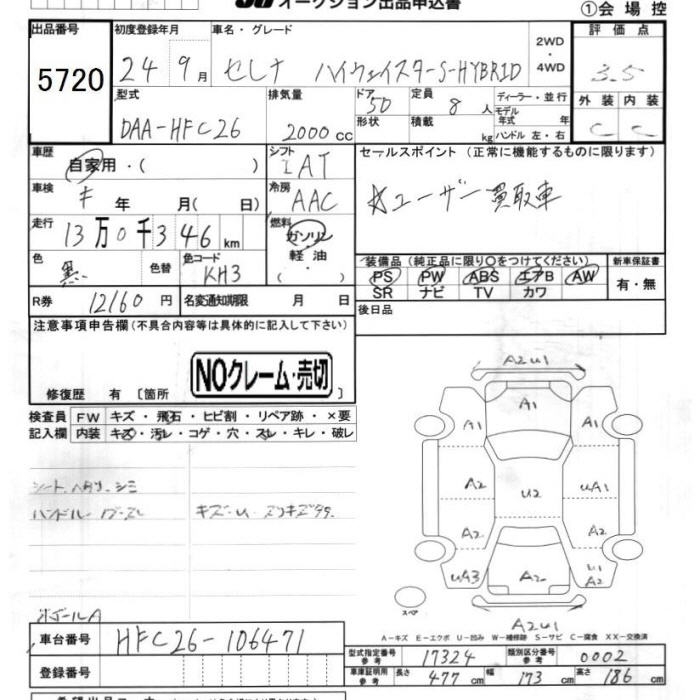 オークション出品申込書
①会場控
出品番号 初度登録年月 車名・グレード 2WD・4WD 評価点
5720 24 9月 セレナ ハイウェイスターS-HYBRID 3.5
型式 排気量 ドア 5D 定員 8人 ディーラー・並行 外装 内装
DAA-HFC26 2000cc 形状 積載 kg モデル年式 年 ハンドル 左・右 C C
車歴 自家用・( ) シフト IAT セールスポイント (正常に機能するものに限ります)
車検 年 月( 日) 冷房 AAC ☆ユーザー買取車
走行 13万0千346km 燃料 ガソリン・軽油・( )
色 黒 色替 色コード KH3 装備品 (純正品に限り○をつけてください) 新車保証書
PS PW ABS エアB AW 有・無
SR ナビ TV カワ
R券 12160円 名変通知期限 月 日 後日品
注意事項申告欄(不具合内容等は具体的に記入して下さい)
NOクレーム・売切
修復歴 有 [箇所 ]
検査員 FW キズ・飛石・ヒビ割・リペア跡・×要
記入欄 内装 キズ・汚レ・コゲ・穴・スレ・キレ・破レ
シート
ハンドル
A2U1
A1 A1 A1
A2 U2 UA1
A2 A2
UA3 A2 A2
スペア
A2U1
A－キズ E－エクボ U－凹み W－補修跡 S－サビ C－腐食 XX－交換済
車台番号 HFC26-106471
型式指定番号 参考 17324 類別区分番号 参考 0002
登録番号 車庫証明用 参考 長さ 477cm 幅 173cm 高さ 186cm